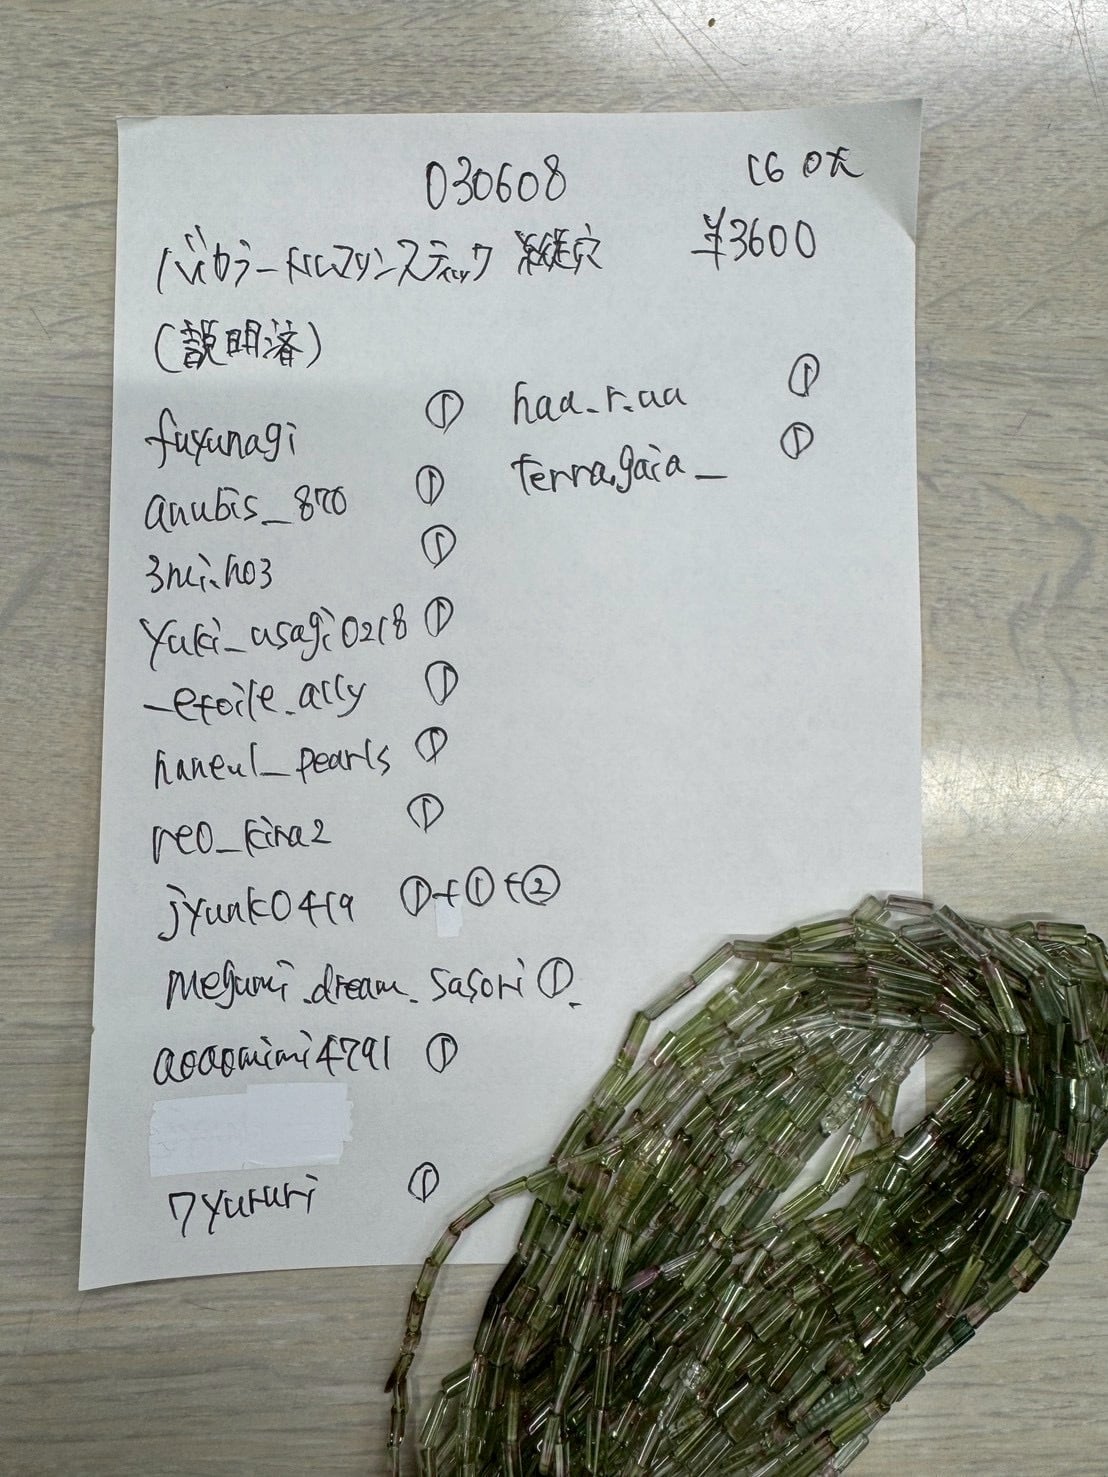 030608
(16 0大
バイカラートルマリンスティック 縦穴 ¥3600
(説明済)
fuyunagi ①
anubis_870 ①
3mi.ho3 ①
yuki_usagi0218 ①
_etoile.ally ①
haneul_pearls ①
reo_kira2 ①
jyunko419 ①+①+②
megumi.dream.sasori ①.
aoaomimi4791 ①
7yururi ①
haa.r.aa ①
terra.gaia_ ①